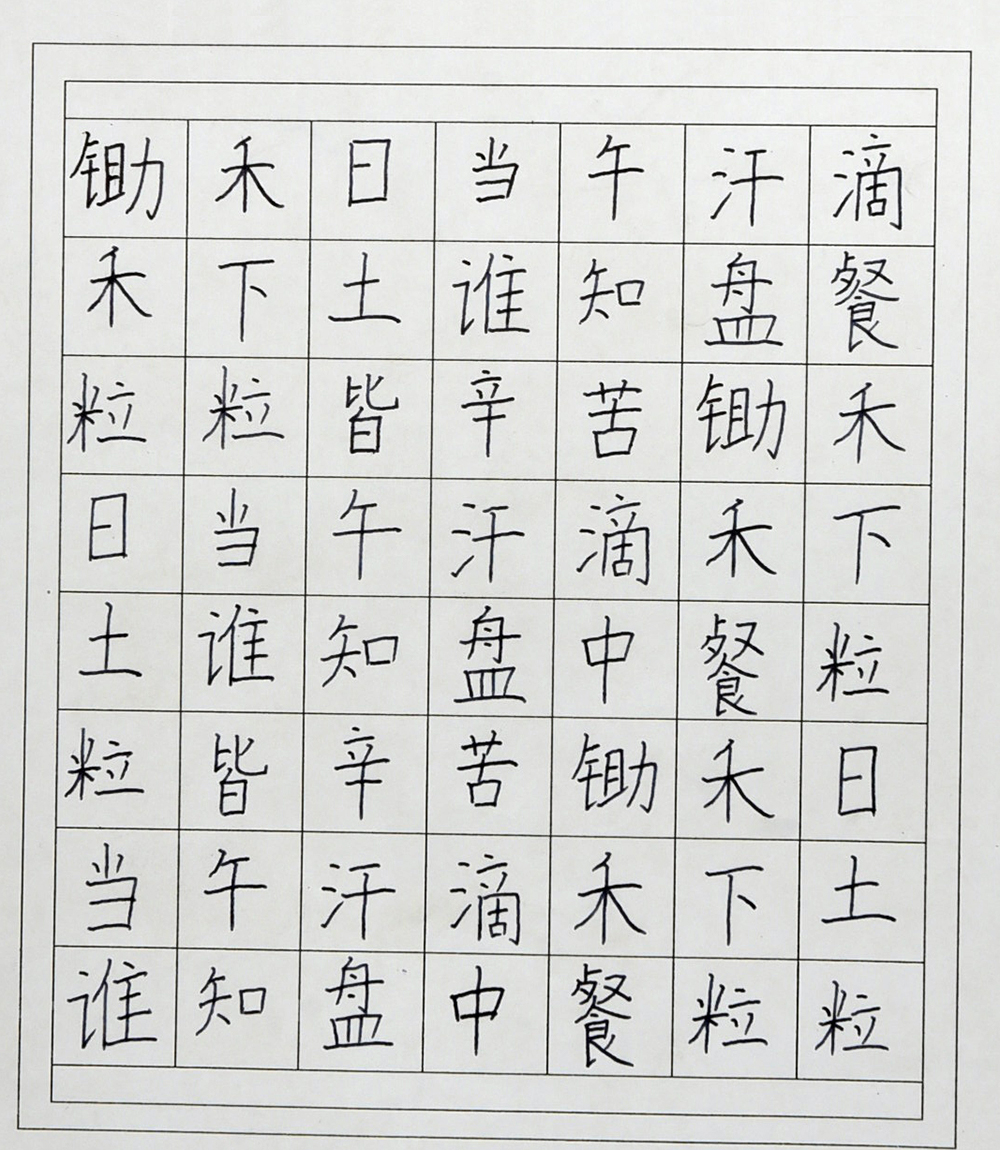 锄禾日当午汗滴
禾下土谁知盘餐
粒粒皆辛苦锄禾
日当午汗滴禾下
土谁知盘中餐粒
粒皆辛苦锄禾日
当午汗滴禾下土
谁知盘中餐粒粒